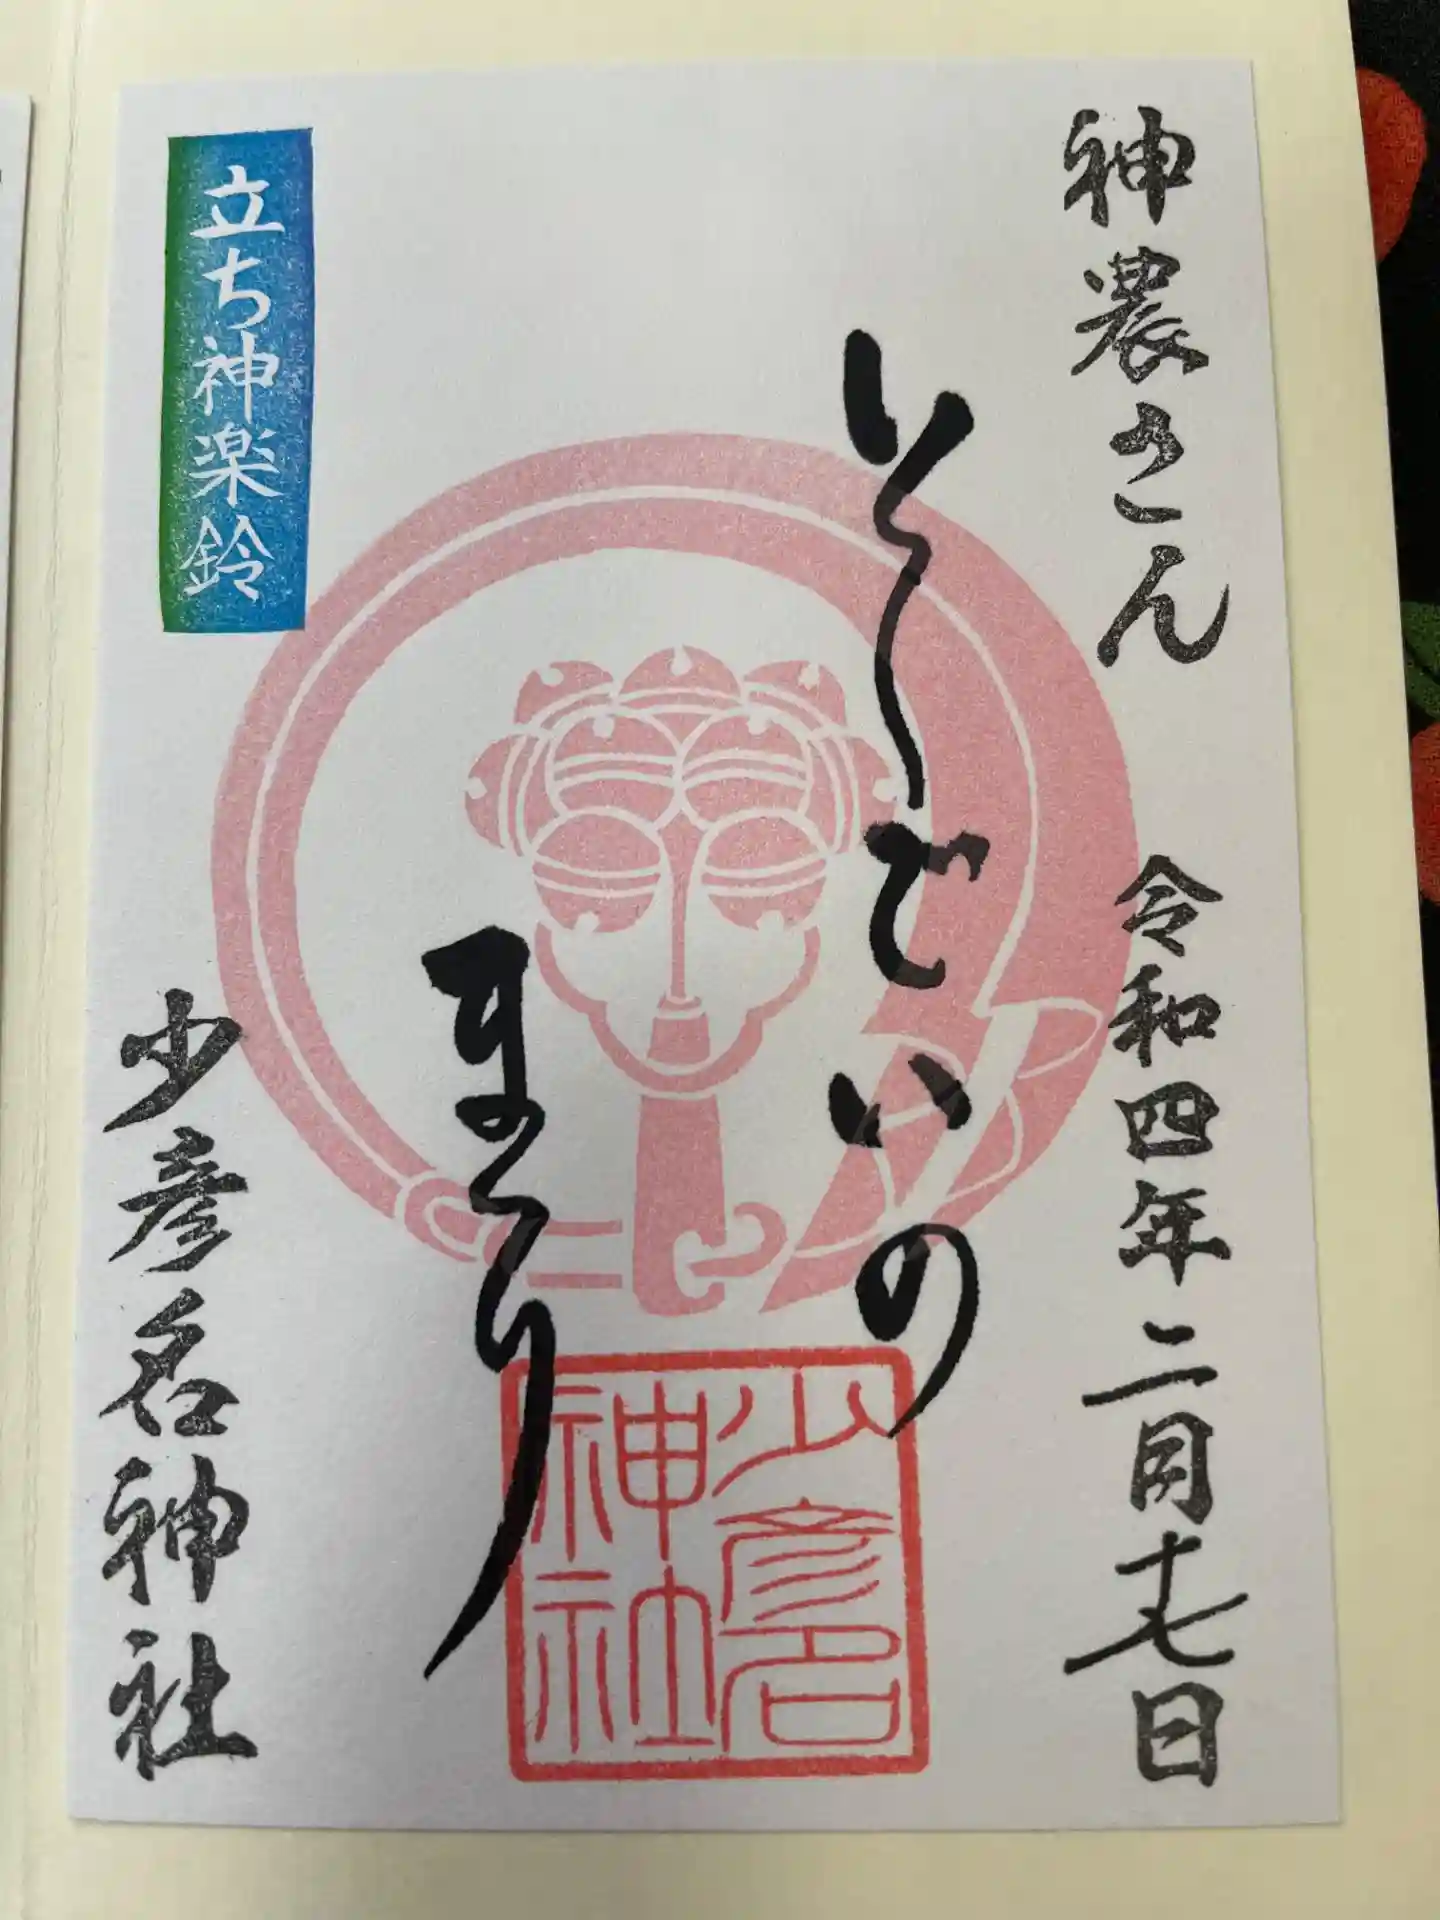 神農さん 令和四年二月十七日
としごいの
まつり
少彦名
神社
立ち神楽鈴
少彦名神社